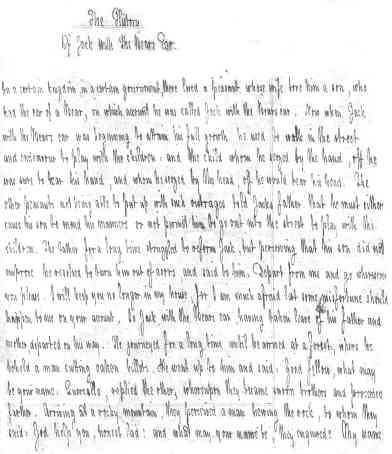 The History
Of Jack with the Bears Ear.
In a certain kingdom in a certain government, there lived a peasant, whose wife bore him a son, who
had the ear of a Bear, on which account he was called Jack with the Bears ear. Now when Jack
with the Bears ear was beginning to attain his full growth he used to walk in the street
and endeavour to play with the children: and the child whom he seized by the hand, off he
was sure to tear his hand, and whom he seized by the head, off he would tear his head. The
other peasants not being able to put up with such outrages told Jacks father that he must either
cause his son to mend his manners or not permit him to go out into the street to play with the
children. The father for a long time struggled to reform Jack but perceiving that his son did not
improve he resolved to turn him out of doors and said to him. Depart from me and go wheresoever
you please. I will keep you no longer in my house, for I am much afraid that some misfortune should
happen to me on your account. So Jack with the Bears ear, having taken leave of his father and
mother departed on his way. He journeyed for a long time until he arrived at a forest, where he
beheld a man cutting oaken billets. He went up to him and said: Good fellow, what may
be your name. Quercillo, replied the other, whereupon they became sworn brothers and proceeded
farther. Arriving at a rocky mountain, they perceived a man hewing the rock, to whom they
said: God help you, honest lad: and what may your name be, they enquired? My name